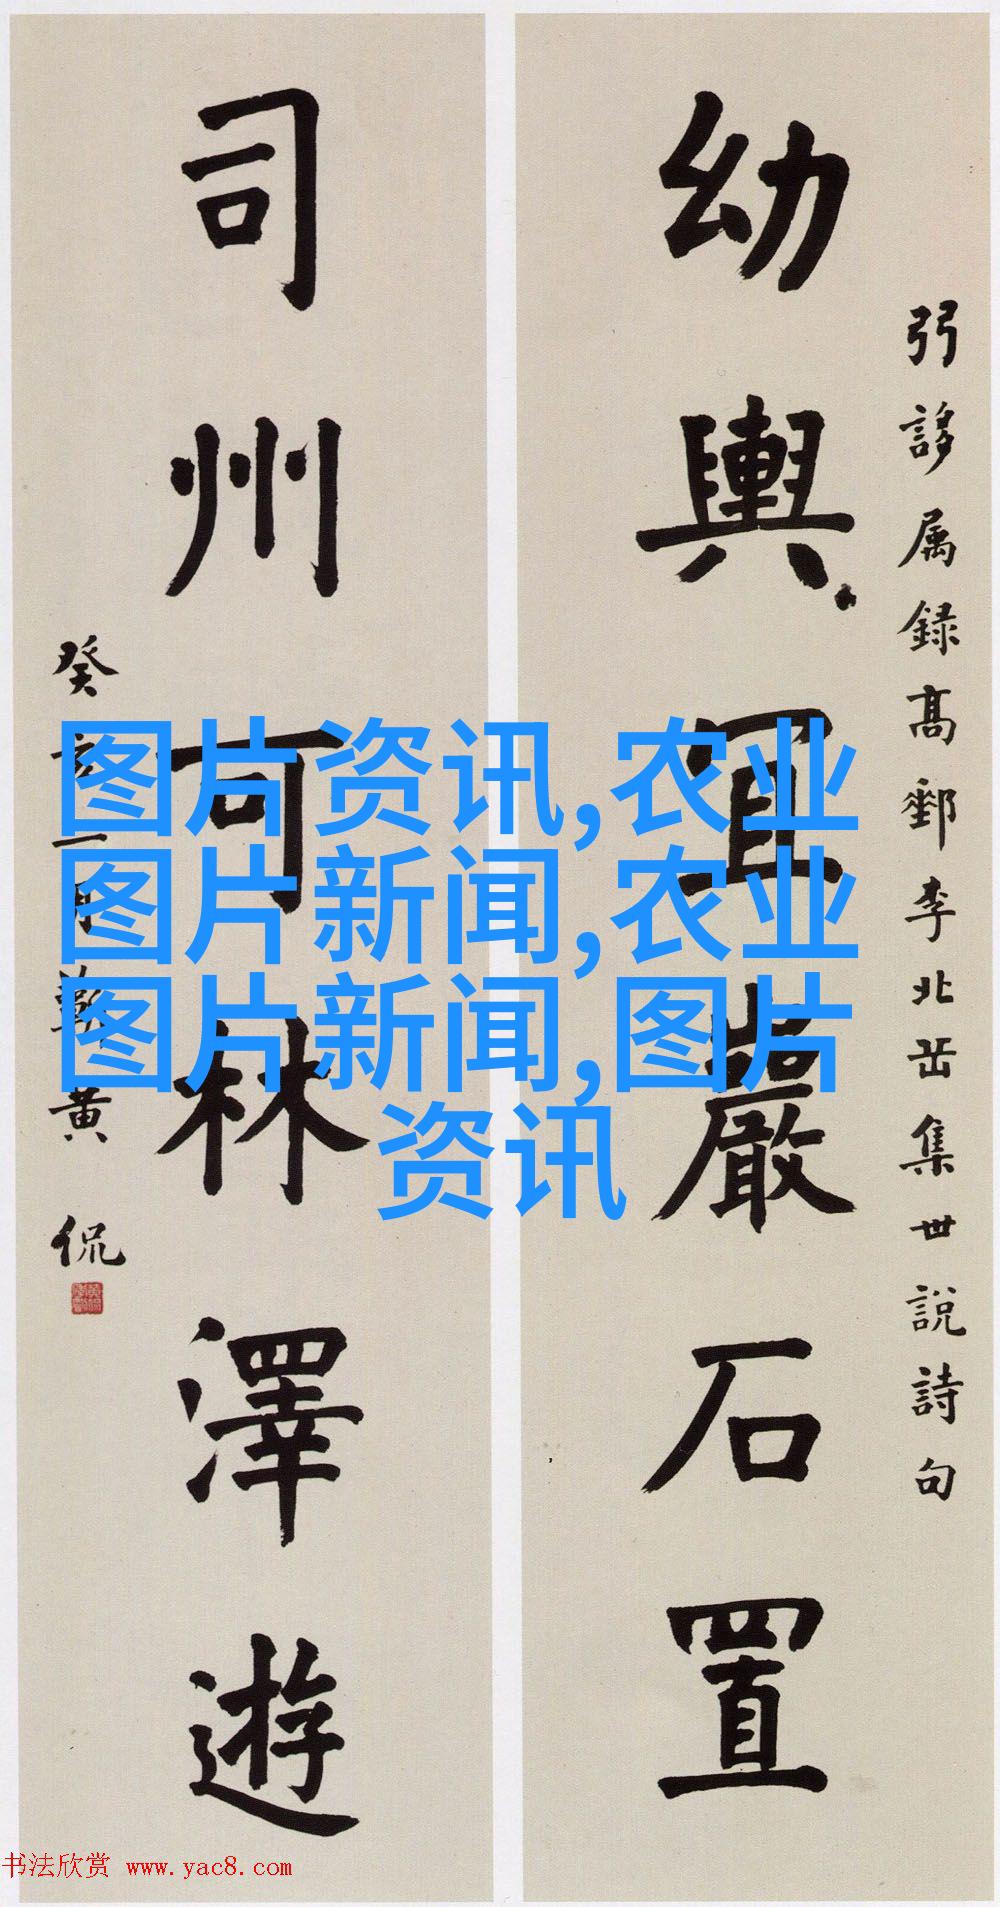 弜誃属録高郵李北岳集世說詩句
幼輿冝巖石置
司州可林澤遊
癸亥一月蘄黄侃
图片资讯,农业
图片新闻,农业
图片新闻,图片
资讯
书法欣赏 www.yac8.com